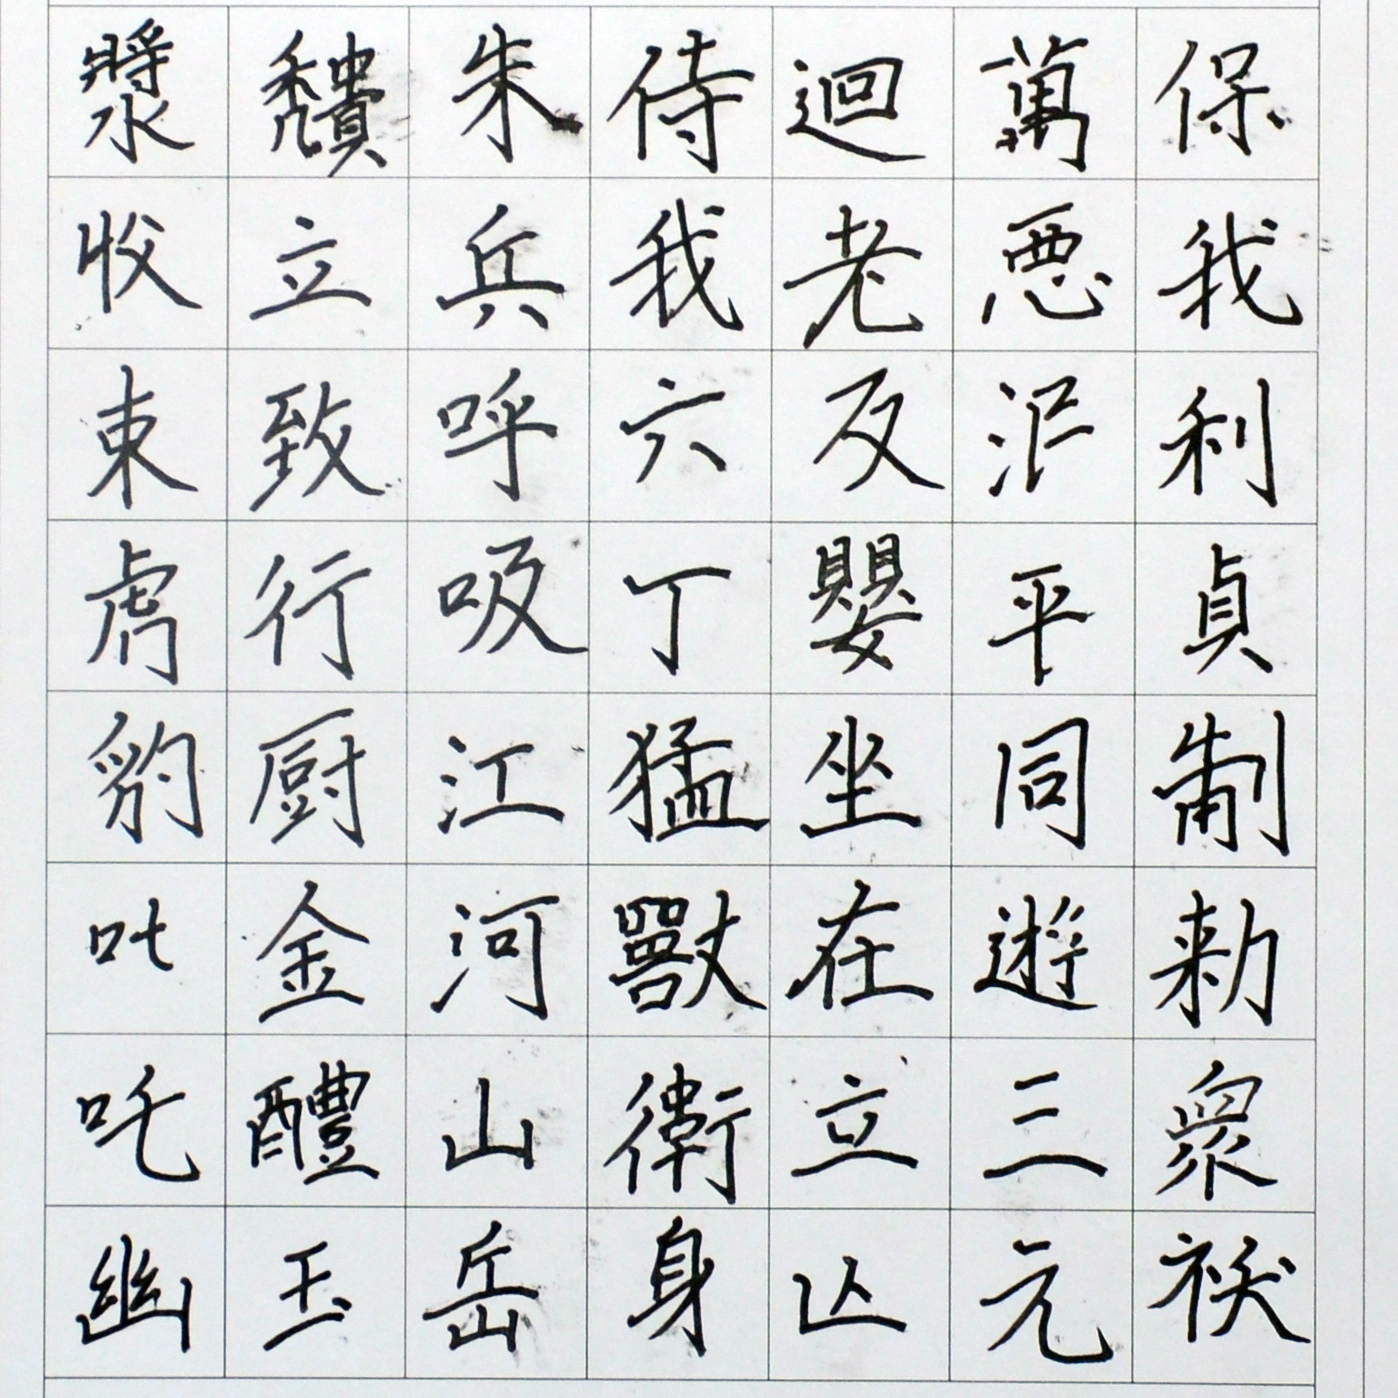 保我利貞制勅衆袄
萬惡泯平同遊三元
迴老反嬰坐在立亾
侍我六丁猛獸衛身
朱兵呼吸江河山岳
頽立致行厨金醴玉
漿收束虎豹叱吒幽